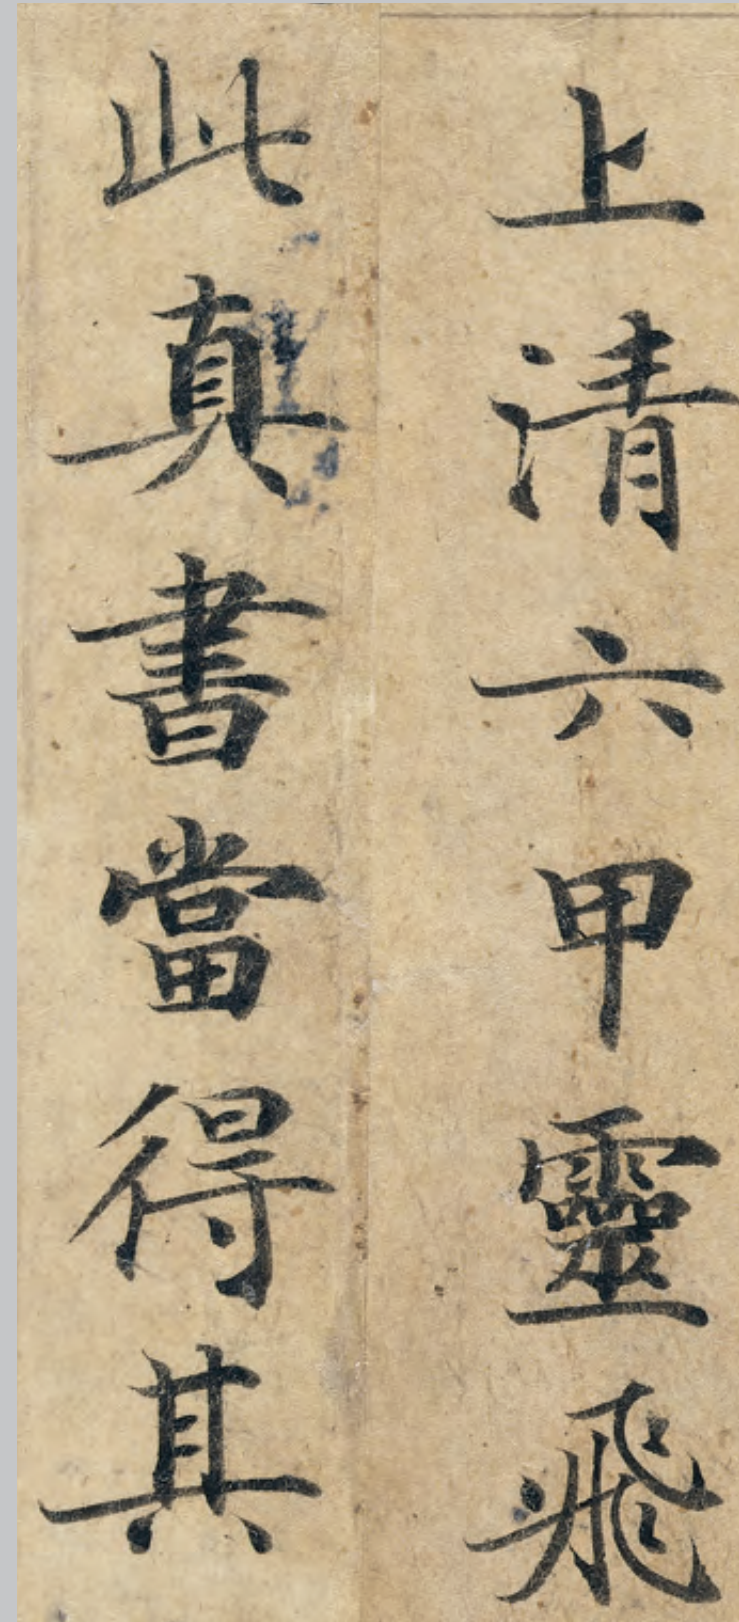 上清六甲靈飛
此真書當得其